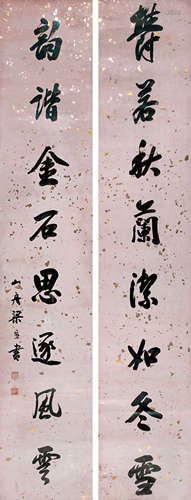 馨若秋蘭潔如冬雪
韵諧金石思逐風雲
山舟梁同書